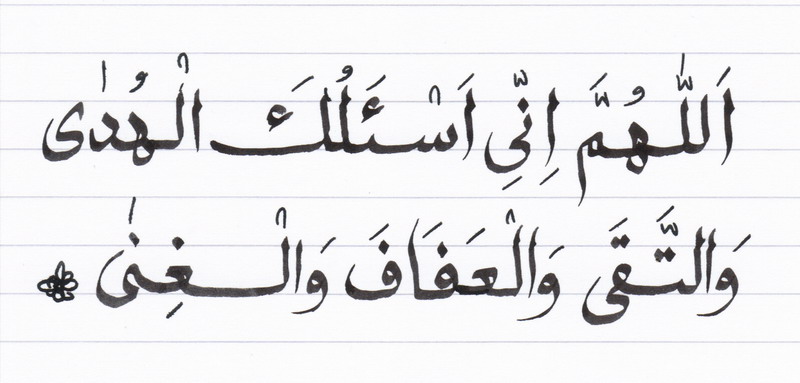 اَللّٰهُمَّ اِنِّي اَسْئَلُكَ الْهُدٰى
وَالتَّقَى وَالْعَفَافَ وَالْغِنٰى